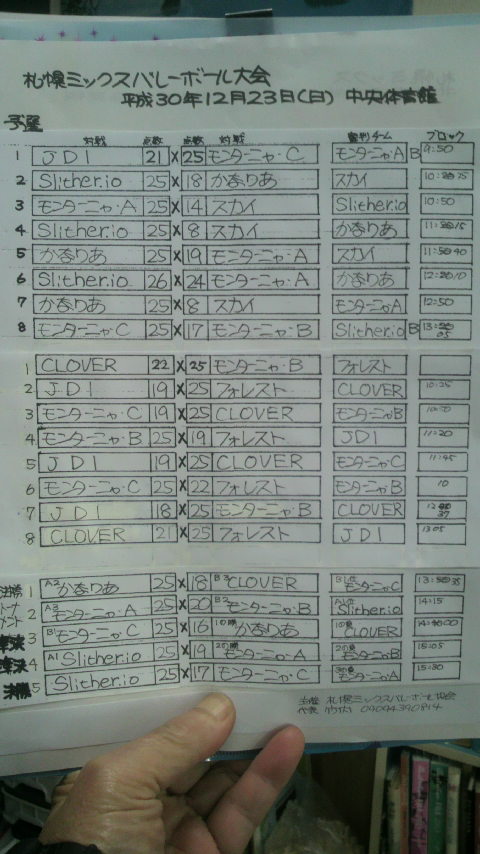 札幌ミックスバレーボール大会
平成30年12月23日(日) 中央体育館
予選
対戦 点数 点数 対戦 審判チーム ブロック
1 JDI 21 × 25 モンターニャ・C モンターニャ・A B 9:50
2 Slither.io 25 × 18 かなりあ スカイ 10:
3 モンターニャ・A 25 × 14 スカイ Slither.io 10:50
4 Slither.io 25 × 8 スカイ かなりあ 11:15
5 かなりあ 25 × 19 モンターニャ・A スカイ 11:40
6 Slither.io 26 × 24 モンターニャ・A かなりあ 12:10
7 かなりあ 25 × 8 スカイ モンターニャA 12:50
8 モンターニャ・C 25 × 17 モンターニャ・B Slither.io B 13:05
1 CLOVER 22 × 25 モンターニャ・B フォレスト
2 J・DI 19 × 25 フォレスト CLOVER 10:25
3 モンターニャ・C 19 × 25 CLOVER モンターニャB 10:50
4 モンターニャ・B 25 × 19 フォレスト JDI 11:20
5 JDI 19 × 25 CLOVER モンターニャ・C 11:45
6 モンターニャ・C 25 × 22 フォレスト モンターニャB 10
7 JDI 18 × 25 モンターニャ・B CLOVER 12:37
8 CLOVER 21 × 25 フォレスト JDI 13:05
決勝トーナメント
1 A2 かなりあ 25 × 18 B3 CLOVER B1位 モンターニャC 13:35
2 A3 モンターニャ・A 25 × 20 B2 モンターニャ・B A1位 Slither.io 14:15
準決 3 B1 モンターニャ・C 25 × 16 1の勝 かなりあ 1の負 CLOVER 14:
準決 4 A1 Slither.io 25 × 19 2の勝 モンターニャ・A 2の負 モンターニャB 15:05
決勝 5 Slither.io 25 × 17 モンターニャ・C モンターニャA 15:30
主催 札幌ミックスバレーボール協会
代表 09094390814